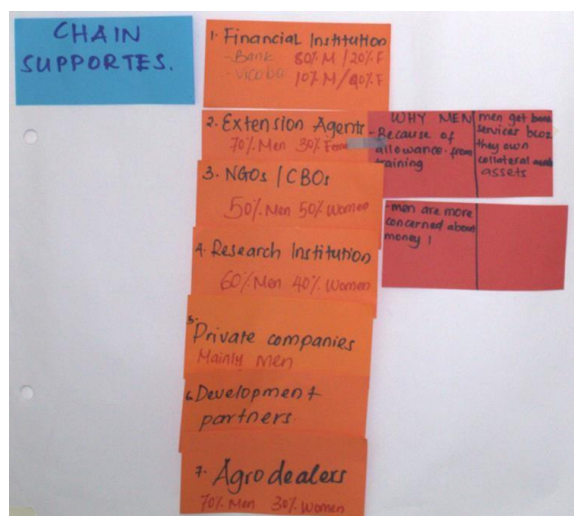 CHAIN
SUPPORTES.
1. Financial Institution
- Bank 80% M / 20% F
- Vicoba 10% M / 90% F
2. Extension Agents
70% Men 30% Fem
3. NGOs / CBOs
50% Men 50% Women
4. Research Institution
60% Men 40% Women
5.
Private companies
Mainly men
6. Development
partners
7. Agrodealers
70% Men 30% Women
WHY MEN
- Because of
allowance from
training
men get bank
services bcoz
they own
collateral
assets
- men are more
concerned about
money !